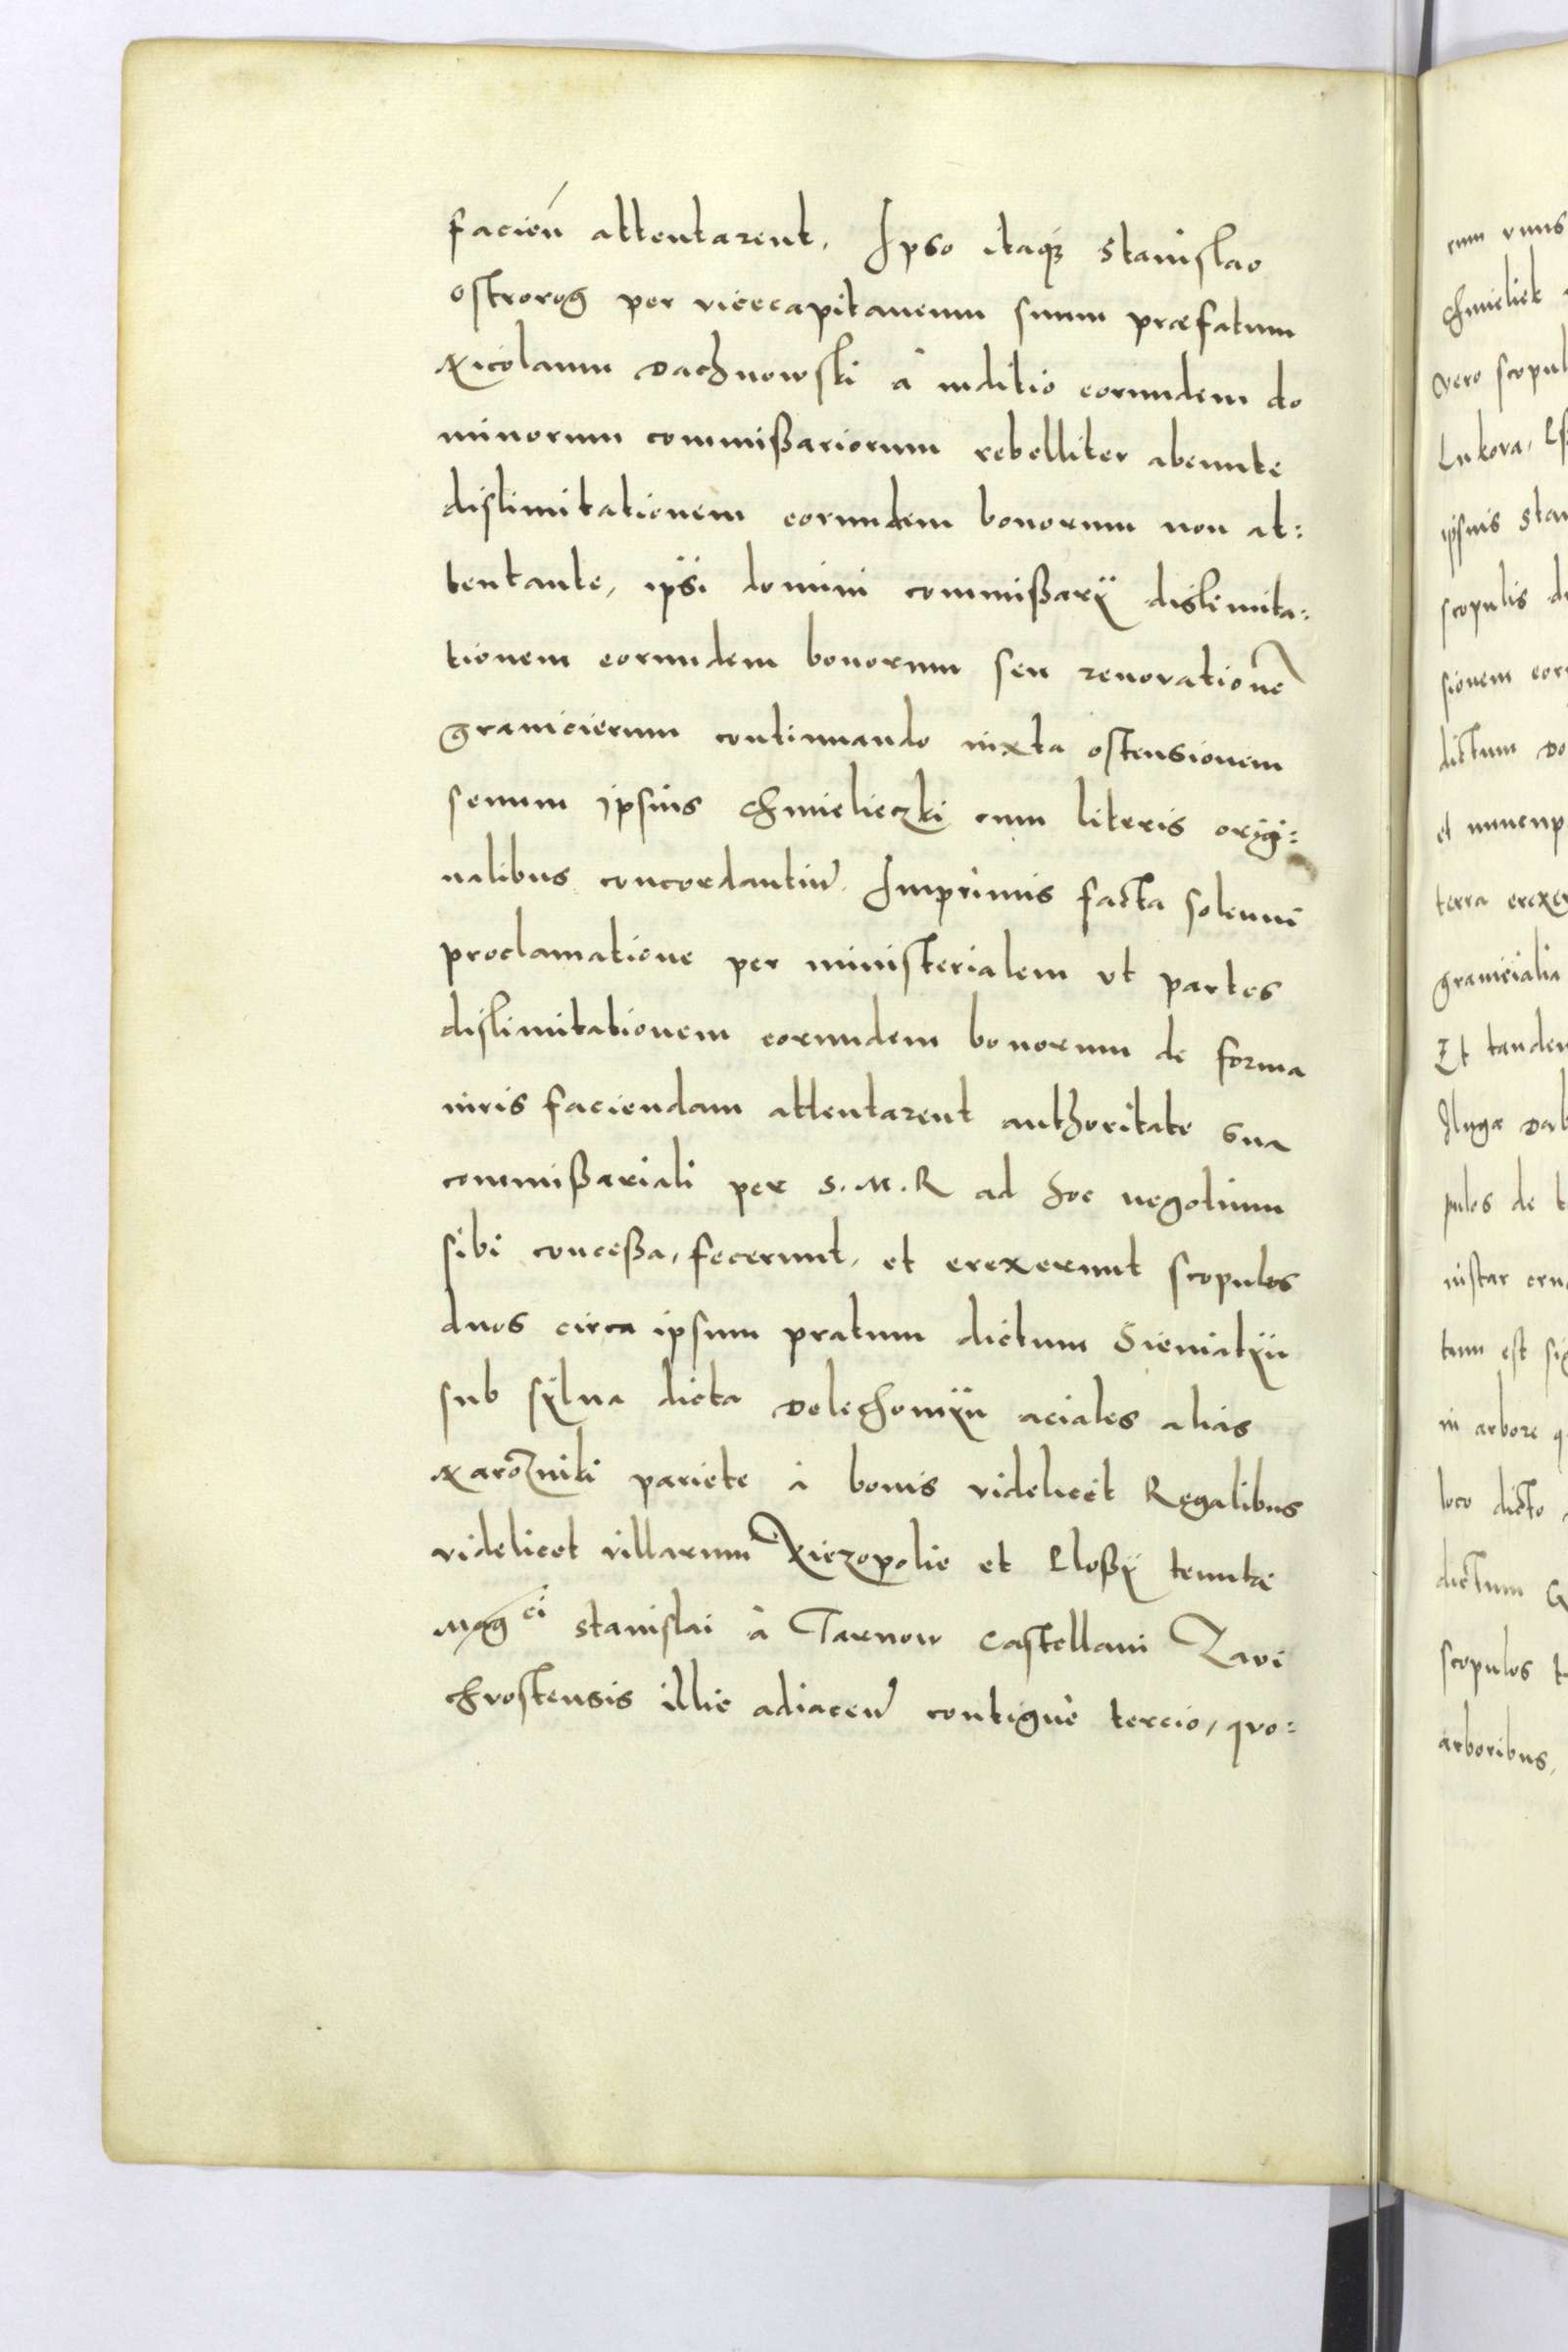 facień attentarent. Ipso itaq3 Stanislao
Ostrorog per vicecapitaneum suum præfatum
Nicolaum Dachnowski à iuditio eorundem do
minorum commißariorum rebelliter abeunte
dislimitationem eorundem bonorum non at:
tentante, ipsi domini commißarÿ dislimita:
tionem eorundem bonorum seu renovationē
granicierum continuando iuxta ostensionem
senum ipsius Chmielieczki cum literis origi:
nalibus concordantiū. Imprimis facta solenni
proclamatione per ministerialem ut partes
dislimitationem eorundem bonorum de forma
iuris faciendam attentarent authoritate sua
commißariali per S. M. R ad hoc negotium
sibi conceßa, fecerunt, et erexerunt scopulos
duos circa ipsum pratum dictum Sieniatÿn
sub sÿlva dicta Dolechomÿn aciales alias
Narozniki pariete à bonis videlicet Regalibus
videlicet villarum Niezopolie et Lloßÿ tenutæ
Mag^ci Stanislai à Tarnow Castellani Zavi
chvostensis illic adiaceń contigue tercio, quo:
cum unus
Chmieliek
vero scopul
Lukova,
ipsius Stan
scopulis
sionem eor
dictum Do
et nuncup
terra erexer
granicialia
Et tandem
dluga Dab
pulos de t
instar
tum est sig
in arbore q
loco dicto
dictum
scopulos t
arboribus,